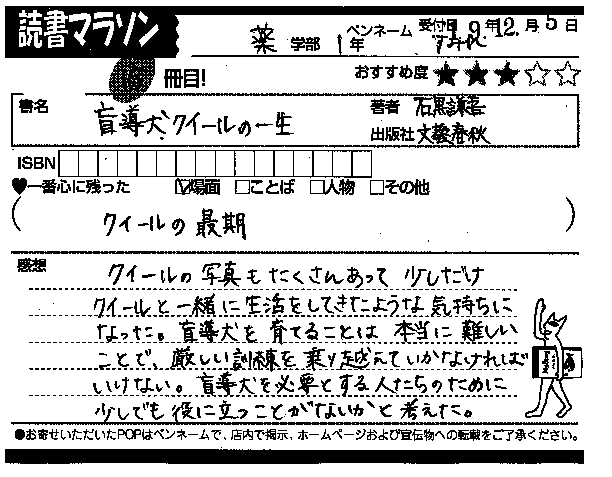 読書マラソン
薬 学部 1年 ペンネーム すみれ 受付日 19年12月5日
冊目!
おすすめ度 ★★★☆☆
書名 盲導犬クイールの一生
著者 石黒謙吾
出版社 文藝春秋
ISBN
♥一番心に残った ☑場面 □ことば □人物 □その他
(クイールの最期)
感想
クイールの写真もたくさんあって 少しだけ
クイールと一緒に生活をしてきたような気持ちに
なった。盲導犬を育てることは 本当に難しい
ことで、厳しい訓練を乗り越えていかなければ
いけない。盲導犬を必要とする人たちのために
少しでも役に立つことがないかと考えた。
●お寄せいただいたPOPはペンネームで、店内で掲示、ホームページおよび宣伝物への転載をご了承ください。